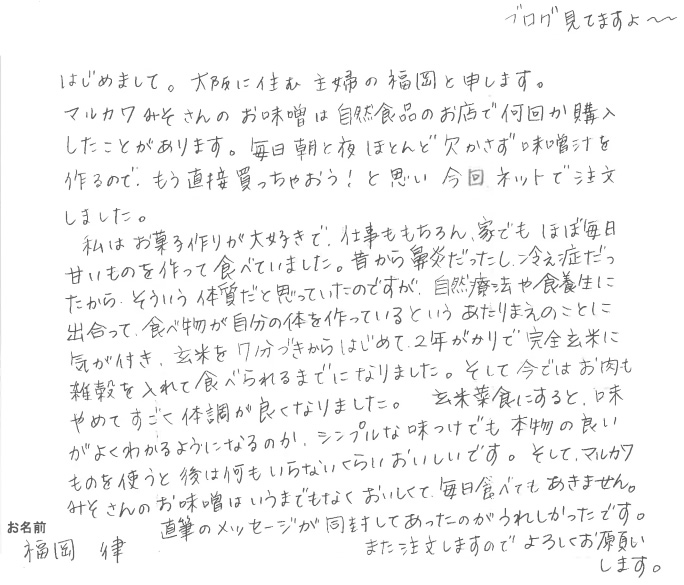 ブログ見てますよ〜
はじめまして。大阪に住む主婦の福岡と申します。
マルカワみそさんのお味噌は自然食品のお店で何回か購入
したことがあります。毎日朝と夜ほとんど欠かさず味噌汁を
作るので、もう直接買っちゃおう!と思い今回ネットで注文
しました。
私はお菓子作りが大好きで、仕事ももちろん、家でもほぼ毎日
甘いものを作って食べていました。昔から鼻炎だったし、冷え症だっ
たから、そういう体質だと思っていたのですが、自然療法や食養生に
出合って、食べ物が自分の体を作っているというあたりまえのことに
気が付き、玄米を7分づきからはじめて、2年がかりで完全玄米に
雑穀を入れて食べられるまでになりました。そして今ではお肉も
やめてすごく体調が良くなりました。 玄米菜食にすると、味
がよくわかるようになるのか、シンプルな味つけでも本物の良い
ものを使うと後は何もいらないくらいおいしいです。そして、マルカワ
みそさんのお味噌はいうまでもなくおいしくて、毎日食べてもあきません。
直筆のメッセージが同封してあったのがうれしかったです。
また注文しますのでよろしくお願い
します。
お名前
福岡 律